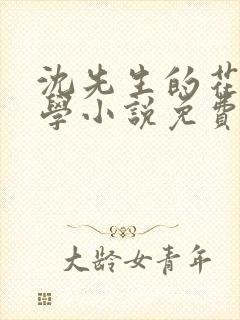 沈先生的花
學小說免費
大齡女青年